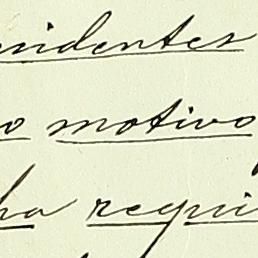 sidentes
o motivo
ha requi